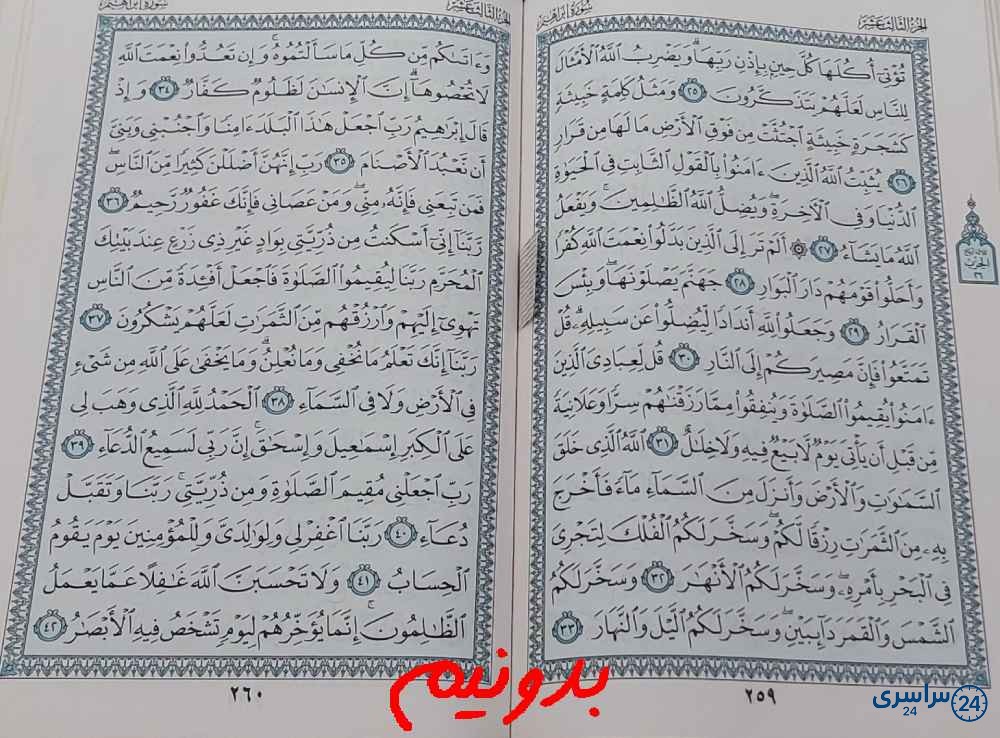 الجزء الثالث عشر
سورة إبراهيم
تُؤْتِىٓ أُكُلَهَا كُلَّ حِينٍۭ بِإِذْنِ رَبِّهَا ۗ وَيَضْرِبُ ٱللَّهُ ٱلْأَمْثَالَ
لِلنَّاسِ لَعَلَّهُمْ يَتَذَكَّرُونَ ٢٥ وَمَثَلُ كَلِمَةٍ خَبِيثَةٍ
كَشَجَرَةٍ خَبِيثَةٍ ٱجْتُثَّتْ مِن فَوْقِ ٱلْأَرْضِ مَا لَهَا مِن قَرَارٍ
٢٦ يُثَبِّتُ ٱللَّهُ ٱلَّذِينَ ءَامَنُوا۟ بِٱلْقَوْلِ ٱلثَّابِتِ فِى ٱلْحَيَوٰةِ
ٱلدُّنْيَا وَفِى ٱلْـَٔاخِرَةِ ۖ وَيُضِلُّ ٱللَّهُ ٱلظَّـٰلِمِينَ ۚ وَيَفْعَلُ
ٱللَّهُ مَا يَشَآءُ ٢٧ ۞ أَلَمْ تَرَ إِلَى ٱلَّذِينَ بَدَّلُوا۟ نِعْمَتَ ٱللَّهِ كُفْرًا
وَأَحَلُّوا۟ قَوْمَهُمْ دَارَ ٱلْبَوَارِ ٢٨ جَهَنَّمَ يَصْلَوْنَهَا ۖ وَبِئْسَ
ٱلْقَرَارُ ٢٩ وَجَعَلُوا۟ لِلَّهِ أَندَادًا لِّيُضِلُّوا۟ عَن سَبِيلِهِۦ ۗ قُلْ
تَمَتَّعُوا۟ فَإِنَّ مَصِيرَكُمْ إِلَى ٱلنَّارِ ٣٠ قُل لِّعِبَادِىَ ٱلَّذِينَ
ءَامَنُوا۟ يُقِيمُوا۟ ٱلصَّلَوٰةَ وَيُنفِقُوا۟ مِمَّا رَزَقْنَـٰهُمْ سِرًّا وَعَلَانِيَةً
مِّن قَبْلِ أَن يَأْتِىَ يَوْمٌ لَّا بَيْعٌ فِيهِ وَلَا خِلَـٰلٌ ٣١ ٱللَّهُ ٱلَّذِى خَلَقَ
ٱلسَّمَـٰوَٰتِ وَٱلْأَرْضَ وَأَنزَلَ مِنَ ٱلسَّمَآءِ مَآءً فَأَخْرَجَ
بِهِۦ مِنَ ٱلثَّمَرَٰتِ رِزْقًا لَّكُمْ ۖ وَسَخَّرَ لَكُمُ ٱلْفُلْكَ لِتَجْرِىَ
فِى ٱلْبَحْرِ بِأَمْرِهِۦ ۖ وَسَخَّرَ لَكُمُ ٱلْأَنْهَـٰرَ ٣٢ وَسَخَّرَ لَكُمُ
ٱلشَّمْسَ وَٱلْقَمَرَ دَآئِبَيْنِ ۖ وَسَخَّرَ لَكُمُ ٱلَّيْلَ وَٱلنَّهَارَ ٣٣
٢٥٩
الجزء الثالث عشر
سورة إبراهيم
وَءَاتَىٰكُم مِّن كُلِّ مَا سَأَلْتُمُوهُ ۚ وَإِن تَعُدُّوا۟ نِعْمَتَ ٱللَّهِ
لَا تُحْصُوهَآ ۗ إِنَّ ٱلْإِنسَـٰنَ لَظَلُومٌ كَفَّارٌ ٣٤ وَإِذْ
قَالَ إِبْرَٰهِيمُ رَبِّ ٱجْعَلْ هَـٰذَا ٱلْبَلَدَ ءَامِنًا وَٱجْنُبْنِى وَبَنِىَّ
أَن نَّعْبُدَ ٱلْأَصْنَامَ ٣٥ رَبِّ إِنَّهُنَّ أَضْلَلْنَ كَثِيرًا مِّنَ ٱلنَّاسِ ۖ
فَمَن تَبِعَنِى فَإِنَّهُۥ مِنِّى ۖ وَمَنْ عَصَانِى فَإِنَّكَ غَفُورٌ رَّحِيمٌ ٣٦
رَّبَّنَآ إِنِّىٓ أَسْكَنتُ مِن ذُرِّيَّتِى بِوَادٍ غَيْرِ ذِى زَرْعٍ عِندَ بَيْتِكَ
ٱلْمُحَرَّمِ رَبَّنَا لِيُقِيمُوا۟ ٱلصَّلَوٰةَ فَٱجْعَلْ أَفْـِٔدَةً مِّنَ ٱلنَّاسِ
تَهْوِىٓ إِلَيْهِمْ وَٱرْزُقْهُم مِّنَ ٱلثَّمَرَٰتِ لَعَلَّهُمْ يَشْكُرُونَ ٣٧
رَبَّنَآ إِنَّكَ تَعْلَمُ مَا نُخْفِى وَمَا نُعْلِنُ ۗ وَمَا يَخْفَىٰ عَلَى ٱللَّهِ مِن شَىْءٍ
فِى ٱلْأَرْضِ وَلَا فِى ٱلسَّمَآءِ ٣٨ ٱلْحَمْدُ لِلَّهِ ٱلَّذِى وَهَبَ لِى
عَلَى ٱلْكِبَرِ إِسْمَـٰعِيلَ وَإِسْحَـٰقَ ۚ إِنَّ رَبِّى لَسَمِيعُ ٱلدُّعَآءِ ٣٩
رَبِّ ٱجْعَلْنِى مُقِيمَ ٱلصَّلَوٰةِ وَمِن ذُرِّيَّتِى ۚ رَبَّنَا وَتَقَبَّلْ
دُعَآءِ ٤٠ رَبَّنَا ٱغْفِرْ لِى وَلِوَٰلِدَىَّ وَلِلْمُؤْمِنِينَ يَوْمَ يَقُومُ
ٱلْحِسَابُ ٤١ وَلَا تَحْسَبَنَّ ٱللَّهَ غَـٰفِلًا عَمَّا يَعْمَلُ
ٱلظَّـٰلِمُونَ ۚ إِنَّمَا يُؤَخِّرُهُمْ لِيَوْمٍ تَشْخَصُ فِيهِ ٱلْأَبْصَـٰرُ ٤٢
٢٦٠
بدونیم
سراسری 24
24